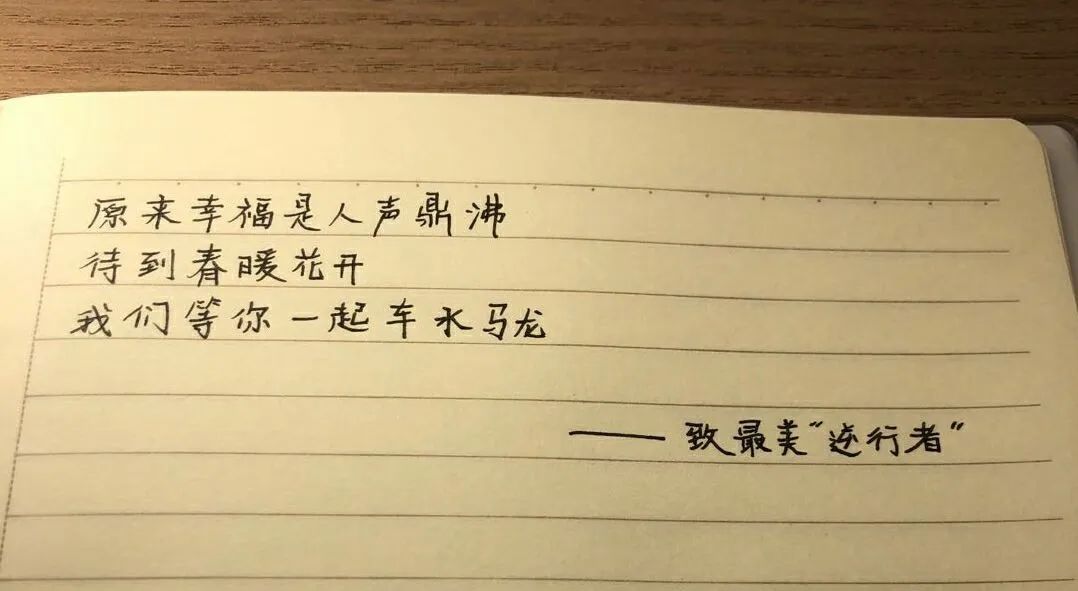 原来幸福是人声鼎沸
待到春暖花开
我们等你一起车水马龙
——致最美“逆行者”